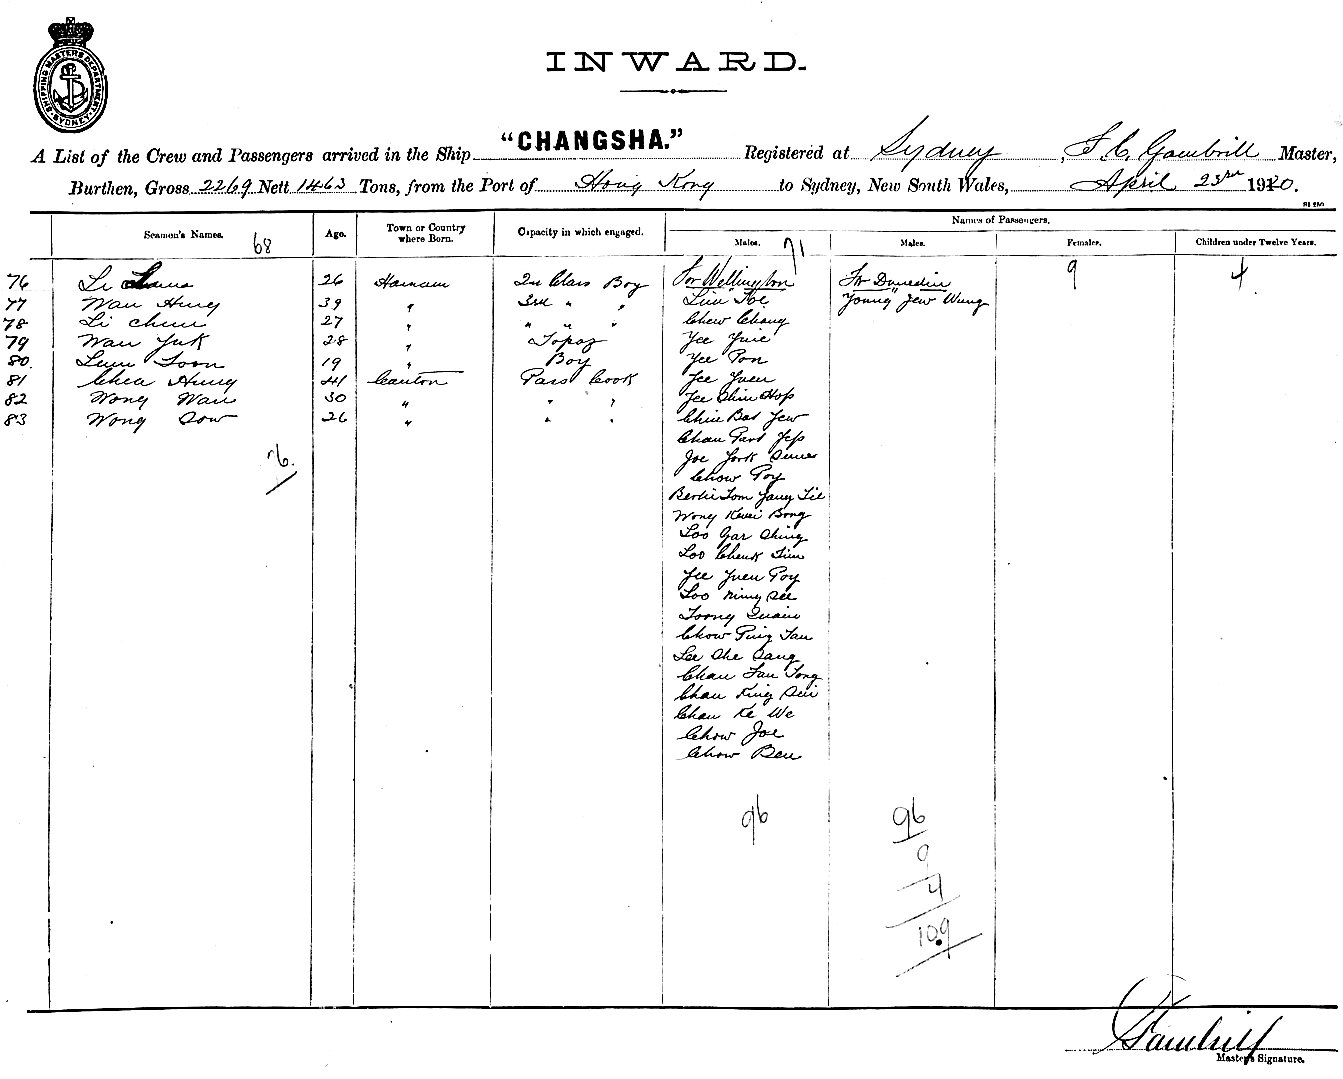 SHIPPING MASTERS DEPARTMENT
SYDNEY
INWARD.
A List of the Crew and Passengers arrived in the Ship "CHANGSHA." Registered at Sydney, Gambrill Master,
Burthen, Gross 2269 Nett 1463 Tons, from the Port of Hong Kong to Sydney, New South Wales, April 23rd 1920.
Names of Passengers.
Seamen's Names. 68 Age. Town or Country where Born. Capacity in which engaged. Males. 71 Males. Females. Children under Twelve Years.
76 Li 26 Hainam 2n Class Boy For Wellington For Dunedin 9 4
77 Wan Hung 39 " 3rd " " Young Jew Wung
78 Li Chun 27 " " " " Chew Chong
79 Wan Yuk 28 " Topaz Yee
80. Loon 19 " Boy Yee Pon
81 Chea Hung 41 Canton Pass Cook Yee Yuen
82 Wong Wan 30 " " " Yee Hop
83 Wong Sow 26 " " " Bat Yew
Chan Part Yep
Joe York
76. Chow Poy
Bertie Tom Yang
Wong Bong
Loo Gar Ching
Loo
Yee Yuen Poy
Loo Ning See
Toong
Chow Ping Tau
Lee She Sang
Chan Fau Tong
Chan King
Chan Ka We
Chow Joe
Chow Ben
96 96
9
4
109
Gambrill
Master's Signature.